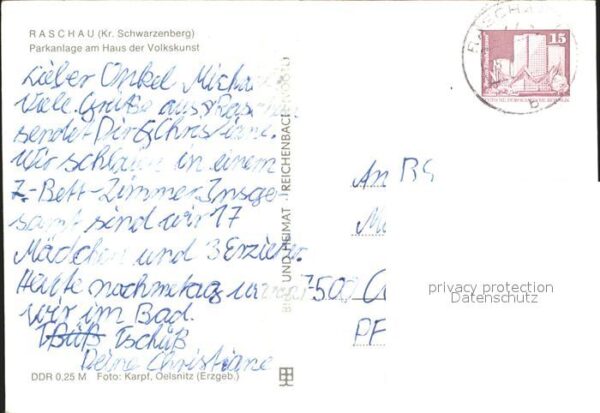 RASCHAU (Kr. Schwarzenberg)
Parkanlage am Haus der Volkskunst
Lieber Onkel Micha
Viele Grüße aus Rascha
sendet Dir Christiane.
Wir schlafen in einem
7-Bett-Zimmer. Insge
samt sind wir 17
Mädchen und 3 Erzieher.
Heute nachmetag waren
wir im Bad.
Tschüß
Deine Christiane
DDR 0,25 M Foto: Karpf, Oelsnitz (Erzgeb.)
BILD UND HEIMAT REICHENBACH
15
RASCHAU
b
An BG
750
PF
privacy protection
Datenschutz